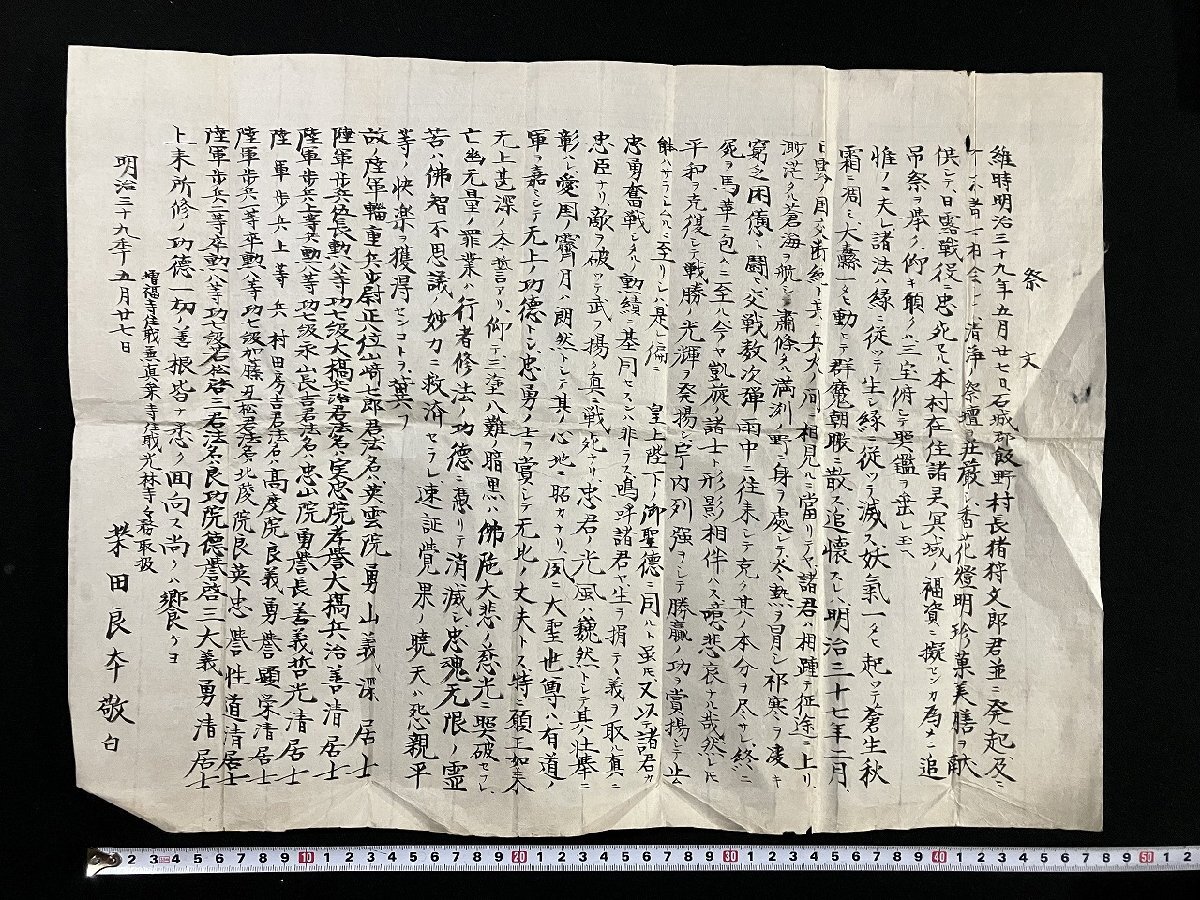 祭文
維時明治三十九年五月廿七日石城郡飯野村長猪狩文郎君並ニ発起及ニ
者一相会シ清浄ノ祭壇ヲ荘厳シ香花燈明珍菓美膳ヲ献
供シテ日露戦役ニ忠死セル本村在住諸君冥域ノ福資ニ擬センカ為メ一追
吊祭ヲ挙ク仰キ願クハ三宝俯シテ照鑑ヲ垂レ玉ヘ
惟ルニ夫レ諸法ハ縁ニ従ツテ生シ縁ニ従ツテ滅ス妖氣一タヒ起ツテ蒼生秋
霜ニ凋ミ大纛一タヒ動テ群魔朝暾ニ散ス追懐スレハ明治三十七年二月
日露ノ国交断絶シ干戈ノ間ニ相見ルニ當リテヤ諸君ハ相踵テ征途ニ上リ
渺茫タル蒼海ヲ航シ蕭條タル満洲ノ野ニ身ヲ處シテ炎熱ヲ冒シ祁寒ヲ凌キ
窮乏困憊ト闘ヒ交戦数次弾雨中ニ往来シテ克ク其ノ本分ヲ尽サレ終ニ
死ヲ馬革ニ包ムニ至ル今ヤ凱旋ノ諸士ト形影相伴ハス噫悲哀ナル哉然レ𪜈
平和ヲ克復シテ戦勝ノ光輝ヲ発揚シ宇内列強ヲシテ勝贏ノ功ヲ賞揚シテ止
能ハサラシムルニ至リシハ是レ偏ニ 皇上陛下ノ御聖徳ニ因ルト虽𪜈又以テ諸君カ
忠勇奮戦シタルノ勲績ニ基因セスンハ非ラス嗚呼諸君ヤ生ヲ捐テ義ヲ取ル真ニ
忠臣ナリ敵ヲ破ツテ武ヲ揚ク真ニ戦死ナリ忠君ノ光風ハ巍然トシテ其ノ壮挙ニ
彰ハレ愛国ノ霽月ハ朗然トシテ其ノ心地ニ昭カナリ夙ニ大聖世尊ハ有道ノ
軍ヲ嘉ミシテ无上ノ功徳トシ忠勇ノ士ヲ賞シテ无比ノ丈夫トス特ニ願王如来
无上甚深ノ本誓アリ仰テ三塗八難ノ暗黒ハ佛陀大悲ノ慈光ニ照破セラレ
亡幽元量ノ罪業ハ行者修法ノ功徳ニ憑リテ消滅シ忠魂无限ノ霊
苦ハ佛智不思議ノ妙力ニ救済セラレ速証覚果ノ暁天ハ怨親平
等ノ快楽ヲ獲得センコトヲ冀フ
故ノ陸軍輜重兵歩尉正八位山崎七郎君法名ハ英雲院勇山義深居士
陸軍歩兵伍長勲八等功七級大橋兵治君法名ハ実忠院孝誉大橋兵治善清居士
陸軍歩兵上等兵勲八等功七級永山長吉君法名ハ忠山院勇誉長善義哲光清居士
陸軍歩兵上等兵村田房吉君法名ハ高度院良義勇誉顕栄清居士
陸軍歩兵一等卒勲八等功七級加藤丑松君法名ハ北陵院良英忠誉性道清居士
陸軍歩兵二等卒勲八等功七級若松啓三君法名ハ良功院徳誉啓三大義勇清居士
上来所修ノ功徳一切ノ善根皆ナ悉ク回向ス尚クハ饗ケヨ
明治三十九年五月廿七日
増福寺住職兼真楽寺住職光林寺寺務取扱
栄田良本敬白